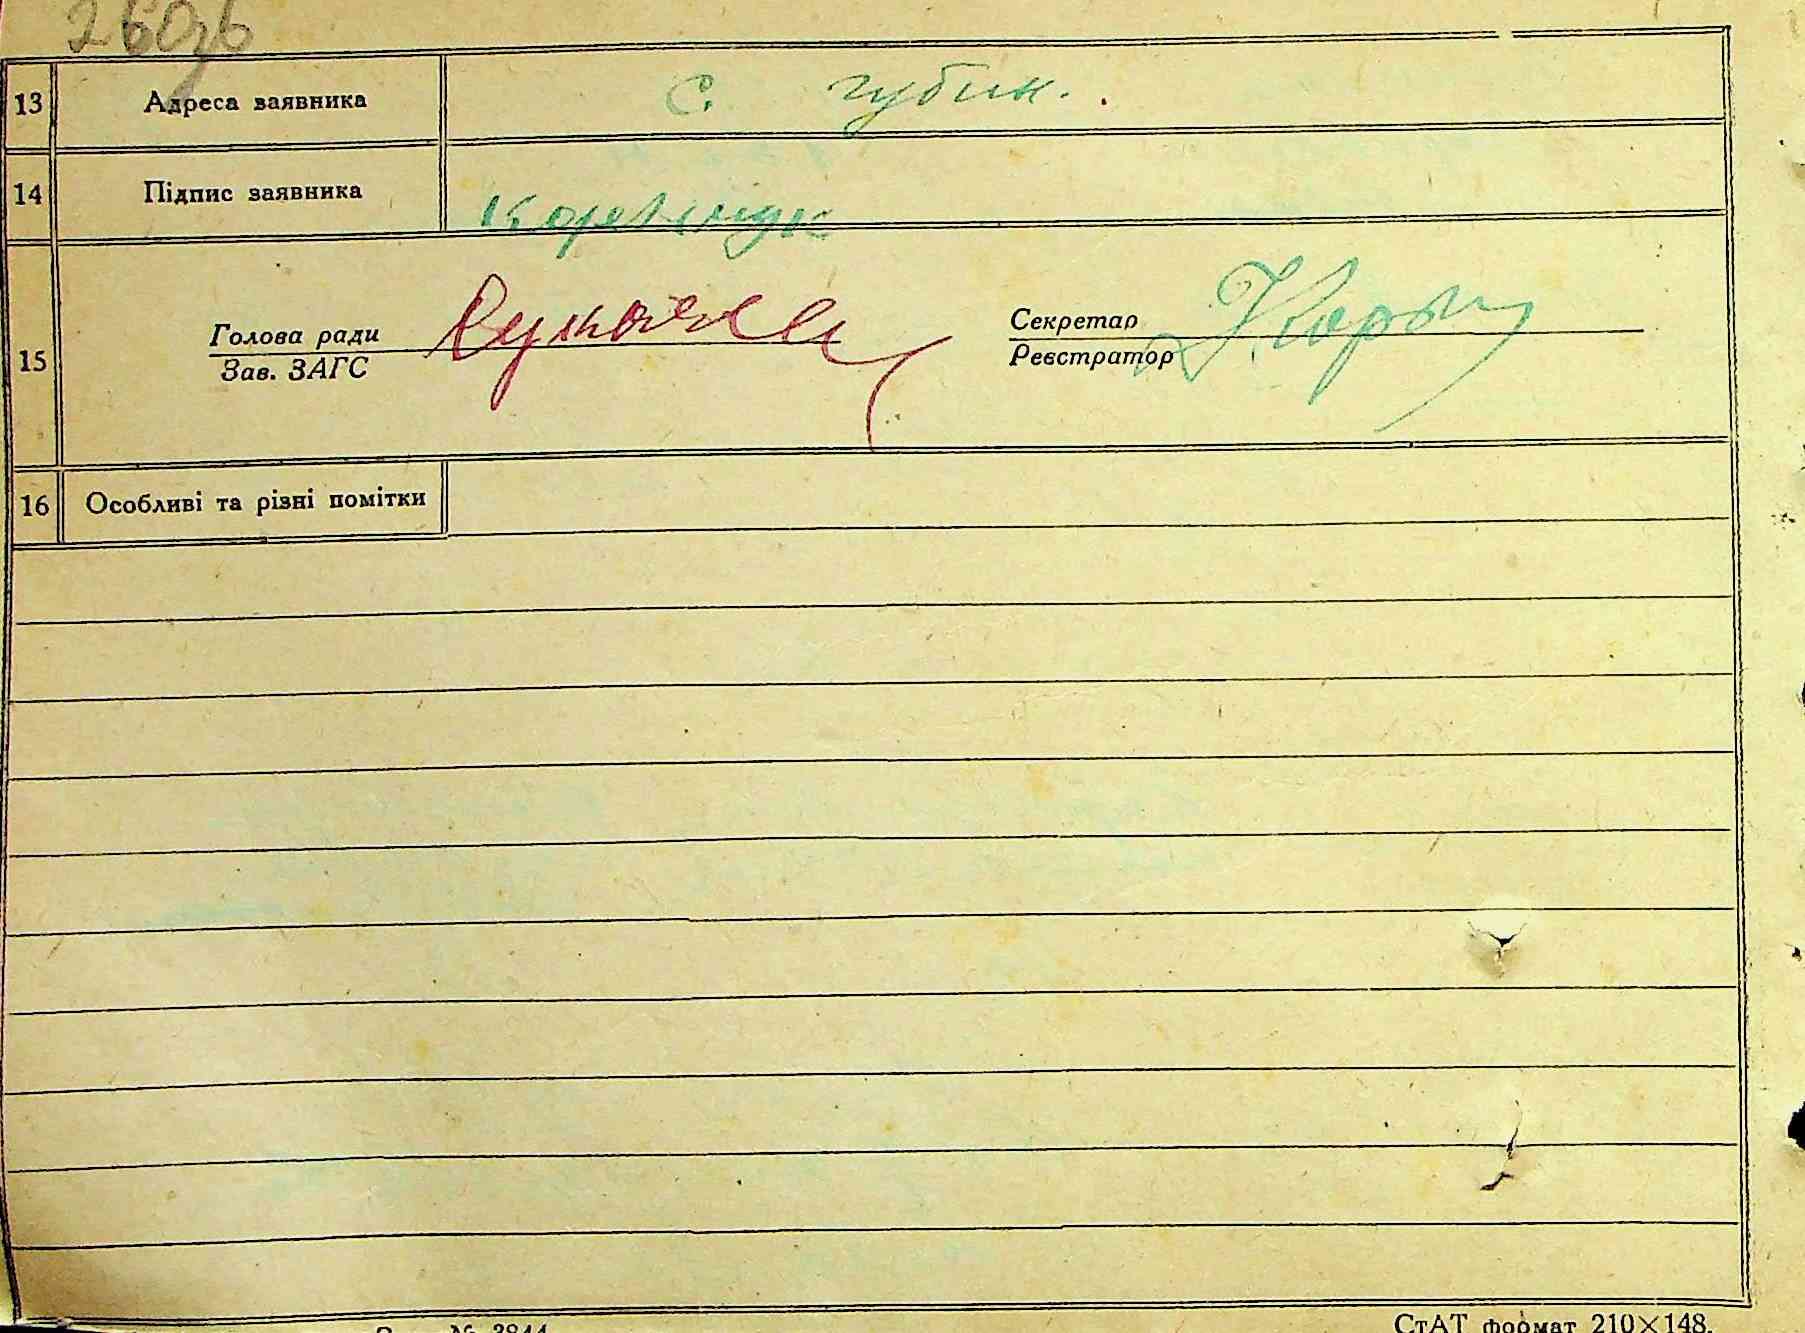 260зв
13 Адреса заявника с. губин.
14 Підпис заявника
15 Голова ради Секретар
Зав. ЗАГС Реєстратор
16 Особливі та різні помітки
№ 3844
СтАТ формат 210×148.